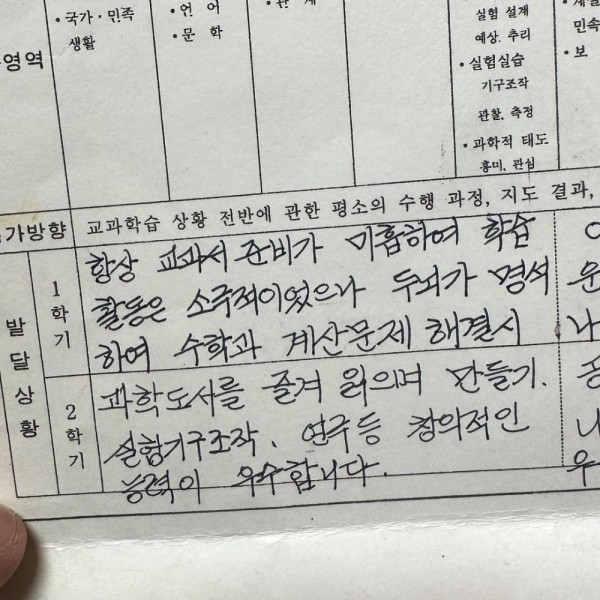 • 국가·민족
생활
• 언 어
• 문 학
실험 설계
예상. 추리
• 실험실습
기구조작
관찰. 측정
• 과학적 태도
흥미. 관심
민속
• 보
영역
가방향
교과학습 상황 전반에 관한 평소의 수행 과정, 지도 결과,
발달상황
1학기
항상 교과서 준비가 미흡하여 학습
활동은 소극적이었으나 두뇌가 명석
하여 수학과 계산문제 해결시
2학기
과학도서를 즐겨 읽으며 만들기.
실험기구조작. 연구등 창의적인
능력이 우수합니다.
운
나
우